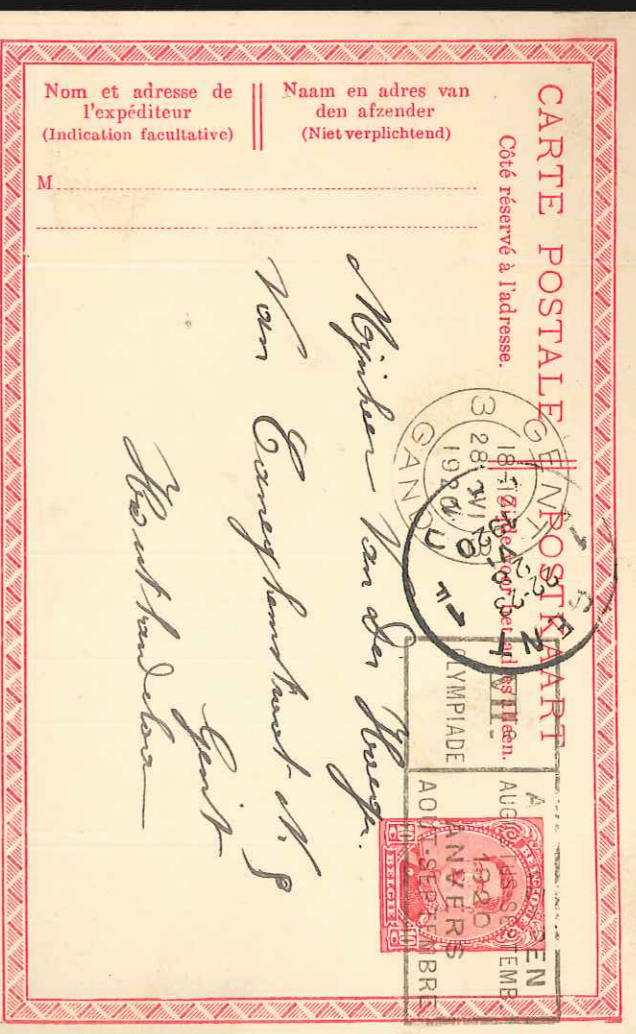 CARTE POSTALE POSTKAART
Côté réservé à l'adresse. Zijde voor het adres alleen.
Nom et adresse de l'expéditeur
(Indication facultative)
Naam en adres van den afzender
(Niet verplichtend)
M
GENT
18-19
3 28 VI 3
1920
GAND
VII.
OLYMPIADE
1920
ANVERS
AOUT-SEPTEMBRE
BELGIE
Mijnheer Van der
Van Caneghemstraat N. 8
Gent
Houthandelaar